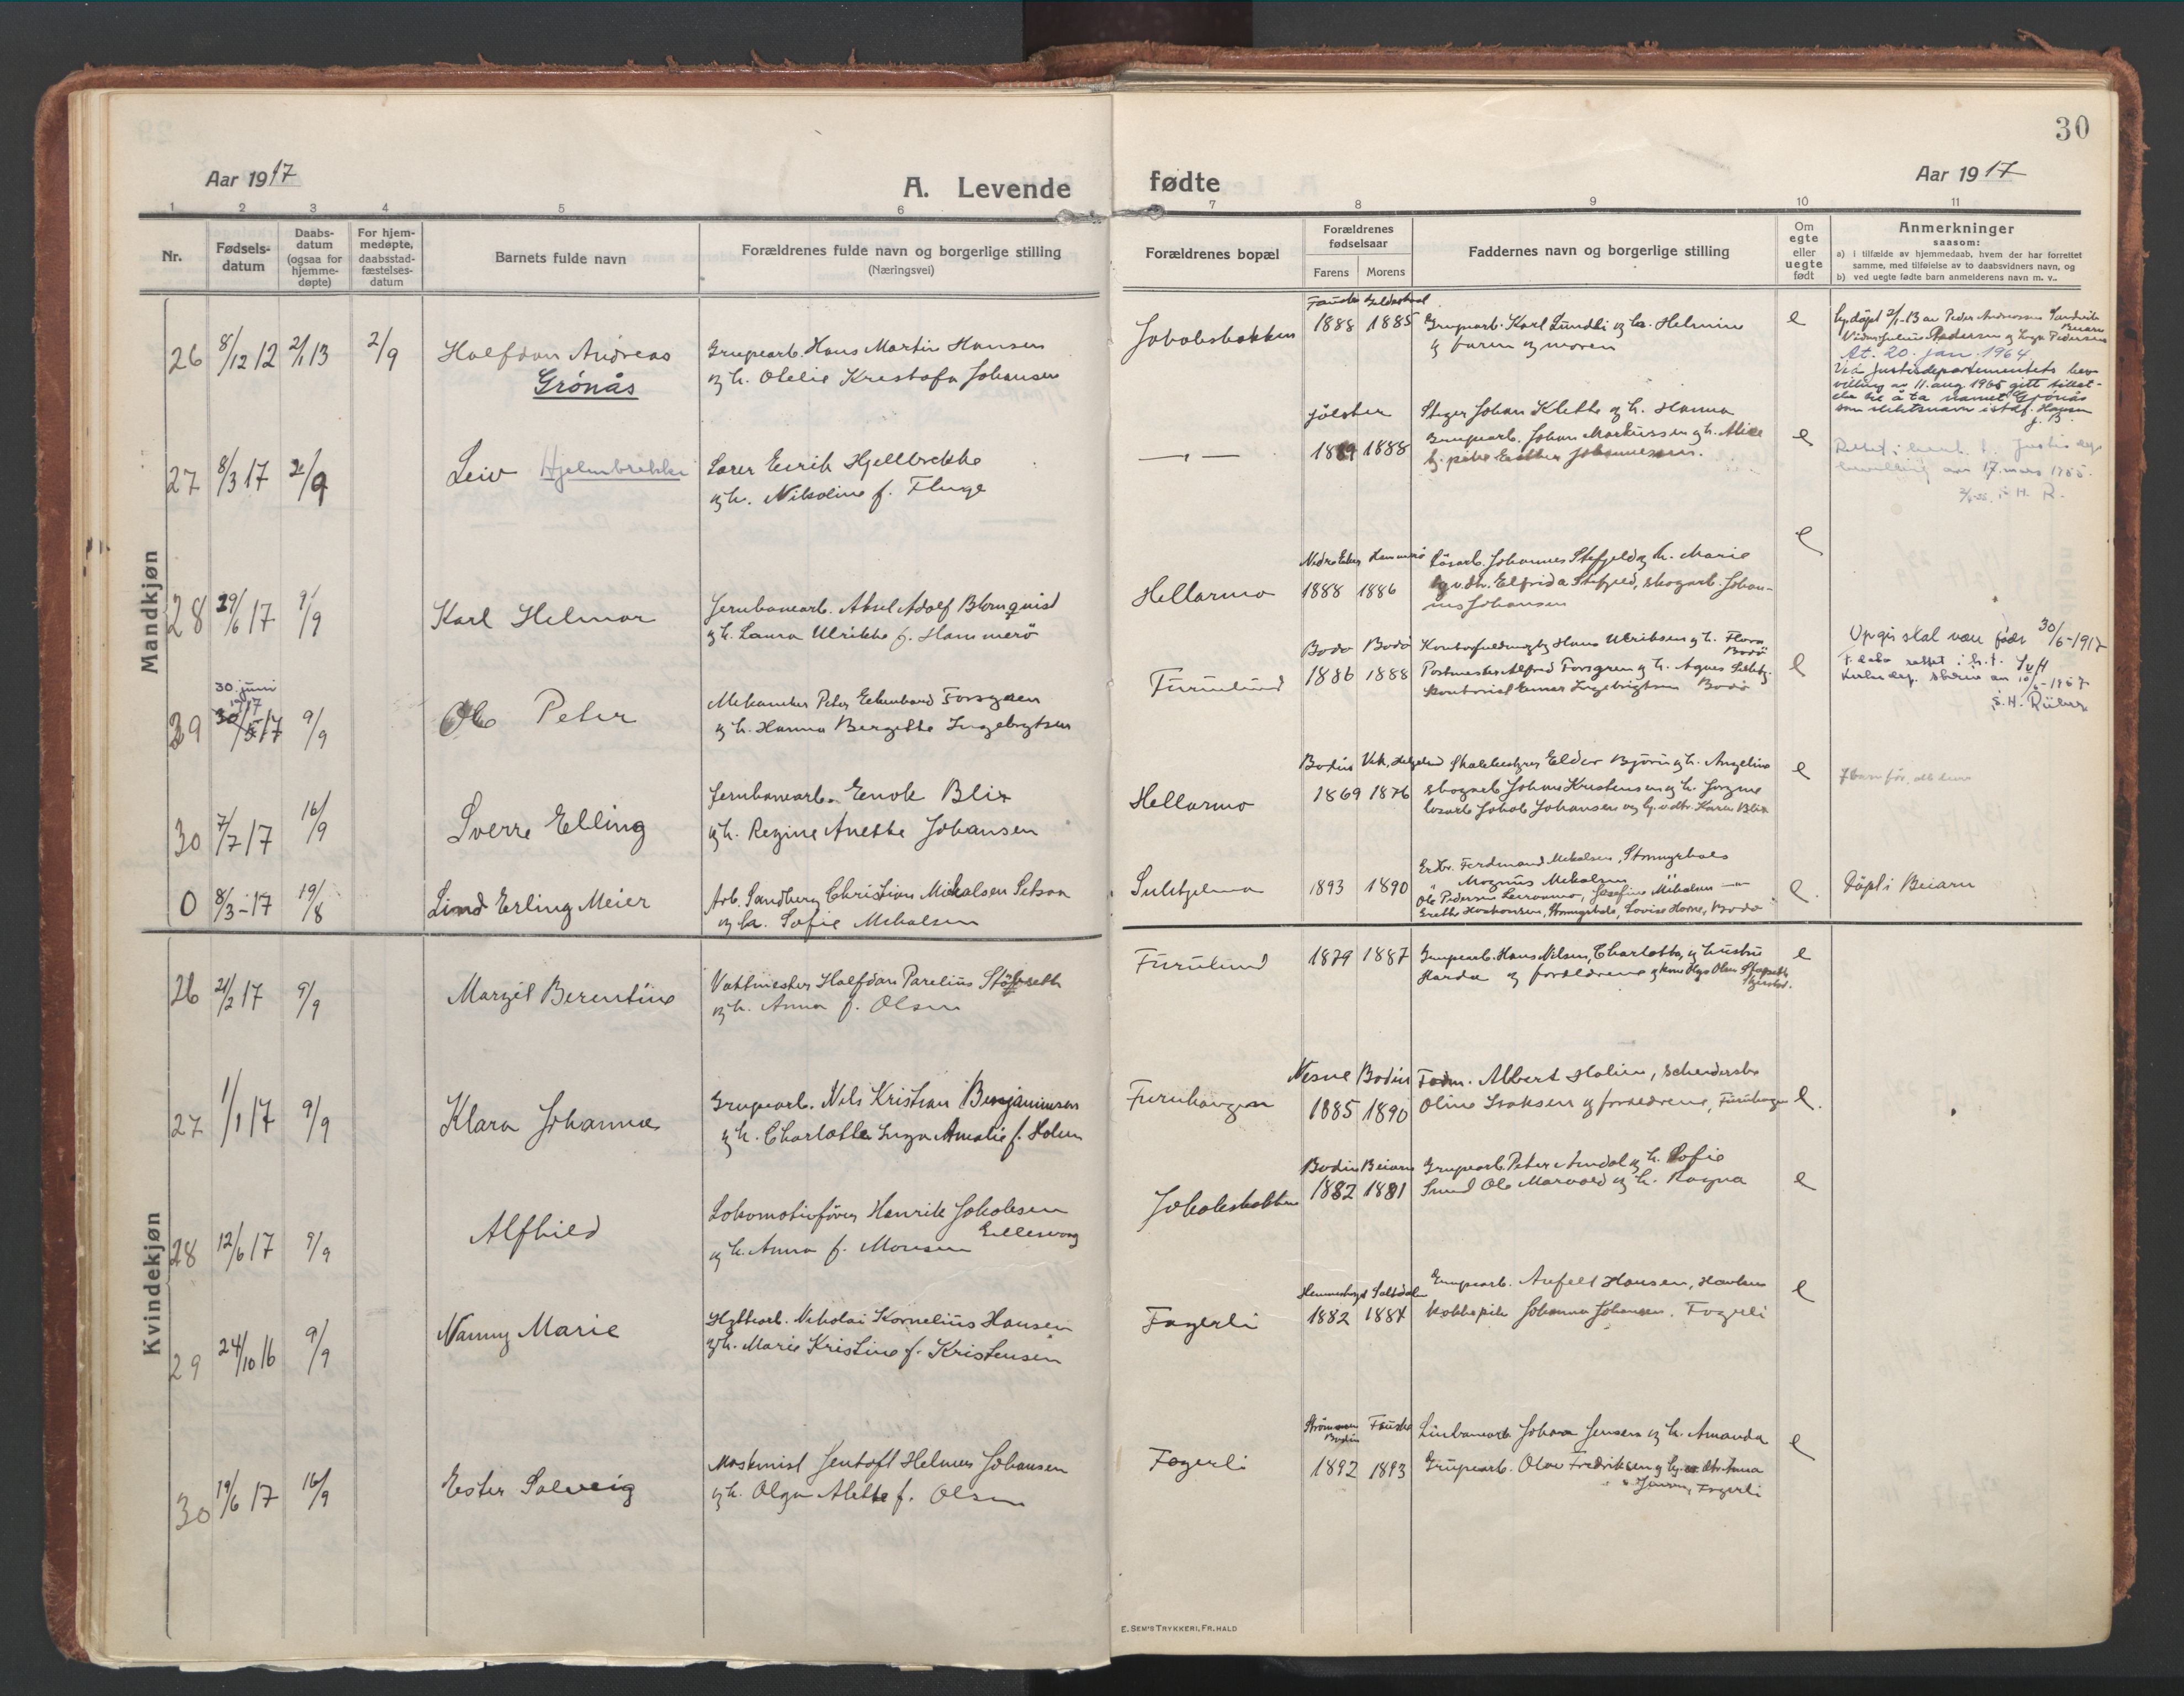 30
Aar 1917
A. Levende
fødte
Aar 1917
1 2 3 4 5 6 7 8 9 10 11
Nr.
Fødsels-
datum
Daabs-
datum
(ogsaa for
hjemme-
døpte)
For hjem-
medøpte,
daabsstad-
fæstelses-
datum
Barnets fulde navn
Forældrenes fulde navn og borgerlige stilling
(Næringsvei)
Forældrenes bopæl
Forældrenes
fødselsaar
Farens
Morens
Faddernes navn og borgerlige stilling
Om
egte
eller
uegte
født
Anmerkninger
saasom:
a) i tilfælde av hjemmedaab, hvem der har forrettet
samme, med tilføielse av to daabsvidners navn, og
b) ved uegte fødte barn anmelderens navn m. v..
Mandkjøn
26 8/12 12 2/1 13 2/9 Halfdan Andreas
Grönås
Grupearb. Hans Martin Hansen
og h. Otelie Kristofa Johansen
Jakobsbakken
1888 1885
Grupearb. Karl Lundli og h. Helmine
og faren og moren
e
At. 20. jan. 1964
Ved Justisdepartementets bev-
villing av 11. aug. 1965 gitt tillat-
else til å ta navnet Grönås
som slektsnavn istdf. Hansen
27 8/3 17 2/9 Leiv
Lærer Eirik Hjellbrekke
og h. Nikoline f. Fluge
Jölster
1889 1888
Steger Johan Klette og h. Hanna
Grupearb. Johan Markussen og h. Alice
og pike Esther Johannessen.
e
28 29/6 17 9/9 Karl Helmar
Jernbanearb. Aksel Adolf Blomquist
og h. Laura Ulrikke f. Hammerö
Hellarmo
1888 1886
Lösarb. Johannes Stefjeld og h. Marie
ug. v. dtr. Elfrida Stefjeld, skogarb. Johan-
nes Johansen
e
39 30. juni
30/5 17 9/9 Ole Peter
Mekaniker Peter Forsgren
og h. Hanna Bergitte Ingebrigtsen
Furulund
Bodø Bodö
1886 1888
Hans Ulriksen og h. Flora
Bodö
Postmester Alfred Forsgren og h. Agnes
Einar Ingebrigtsen Bodö
e
Opgis skal være født 30/6-1917
30 7/7 17 16/9 Sverre Elling
Jernbanearb. Enok Blix
og h. Regine Anette Johansen
Hellarmo
Bodin
1869 1876
Eldor Björn og h. Angeline
skogarb. Johan Kristensen og h. Jorgine
lösarb. Jakob Johansen og ug. v. dtr. Karen Blix
e
0 8/3-17 19/8 Lind Erling Meier
Arb. Sandberg Christian Mikalsen Setsaa
og h. Sofie Mikalsen
Sulitjelma
1893 1890
Ferdinand Mikalsen,
" Magnus Mikalsen "
Ole Pedersen Leiraamo, Josefine Mikalsen
Lovise Horne, Bodö
e.
Döpt i Beiarn
Kvindekjøn
26 21/2 17 9/9 Margit Berentine
Vaktmester Halfdan Parelius Stöpseth
og h. Anna f. Olsen
Furulund
1879 1887
Grupearb. Hans Nilsen, Charlotta og hustru
Harda og forældrene
e
27 1/1 17 9/9 Klara Johanne
Grupearb. Nils Kristian Benjaminsen
og h. Charlotte Inga Amalie f. Holm
Furuhaugen
Nesne Bodin
1885 1890
Form. Albert Holm,
Oline Isaksen og forældrene, Furuhaugen
e.
28 12/6 17 9/9 Alfhild
Lokomotivförer Henrik Jakobsen
Eillesvaag
og h. Anna f. Monsen
Jakobsbakken
Bodin Beiarn
1882 1881
Grupearb. Peter Amdal og h. Sofie
Smed Ole Marvold og h. Ragna
e
29 24/10 16 9/9 Nanny Marie
Hyttearb. Nikolai Kornelius Hansen
og h. Marie Kristine f. Kristensen
Fagerli
Saltdalen
1882 1884
Grupearb. Anfelt Hansen,
Kokkepike Johanna Johansen. Fagerli
e
30 19/6 17 16/9 Ester Solveig
Maskinist Jentoft Helmer Johansen
og h. Olga Alette f. Olsen
Fagerli
Strömmen Fauske
Bodin
1892 1893
Linbanearb. Johan Jensen og h. Amanda
Grupearb. Olav Fredriksen og ug. dtr. Anna
Jensen, Fagerli
e
E. SEM'S TRYKKERI, FR.HALD